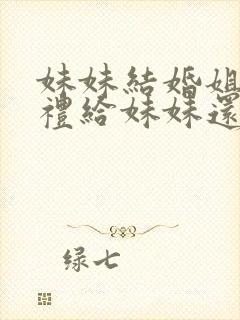 妹妹結婚姐
禮給妹妹還
绿七